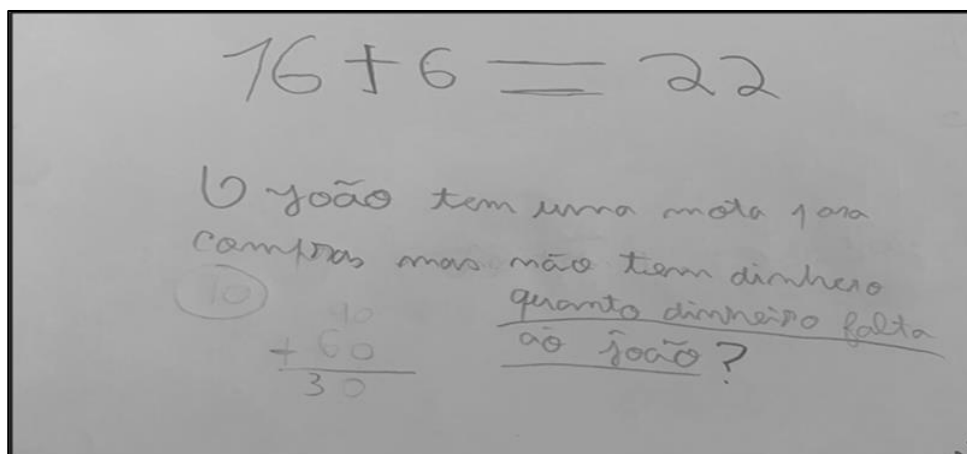 16 + 6 = 22
O João tem uma mota para
compras mas não tem dinhero
quanto dinheiro falta
ao joão?
10
40
+ 60
30